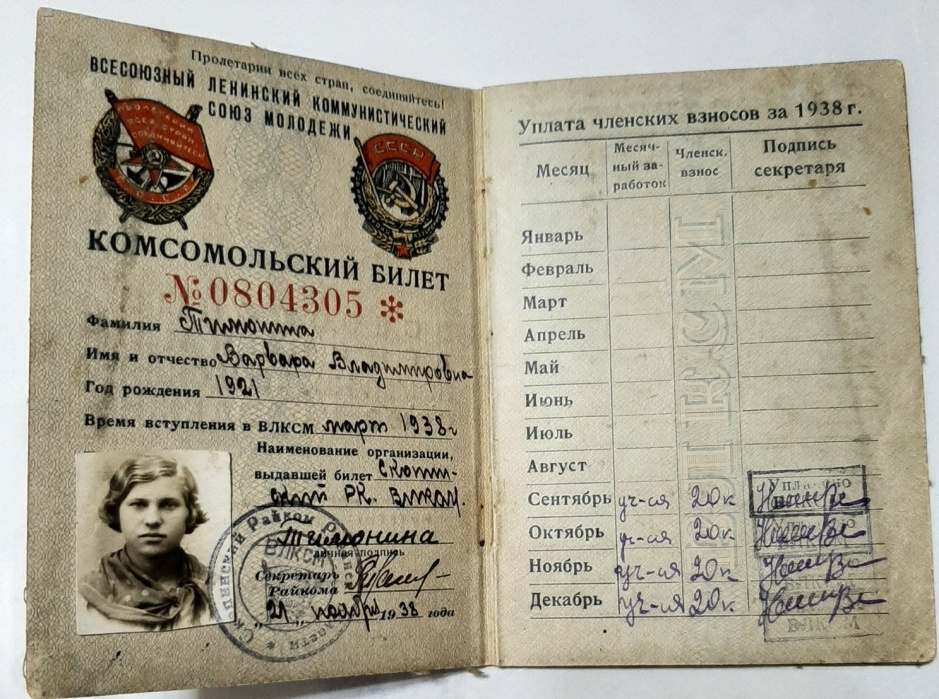 Пролетарии всех стран, соединяйтесь!
ВСЕСОЮЗНЫЙ ЛЕНИНСКИЙ КОММУНИСТИЧЕСКИЙ
СОЮЗ МОЛОДЕЖИ
ПРОЛЕТАРИИ
ВСЕХ СТРАН,
СОЕДИНЯЙТЕСЬ
СССР
СССР
КОМСОМОЛЬСКИЙ БИЛЕТ
№ 0804305 *
Фамилия
Имя и отчество Варвара Владимировна
Год рождения 1921
Время вступления в ВЛКСМ март 1938 г
Наименование организации,
выдавшей билет
РК. ВЛКСМ.
Тимонина
личная подпись
Секретарь
Райкома
„21„ ноября 1938 года
Райком
ВЛКСМ
Уплата членских взносов за 1938 г.
Месяц Месяч-ный за-работок Членск. взнос Подпись секретаря
Январь
Февраль
Март
Апрель
Май
Июнь
Июль
Август
Сентябрь уч-ся 20к
Октябрь уч-ся 20к
Ноябрь уч-ся 20к
Декабрь уч-ся 20к
ВЛКСМ